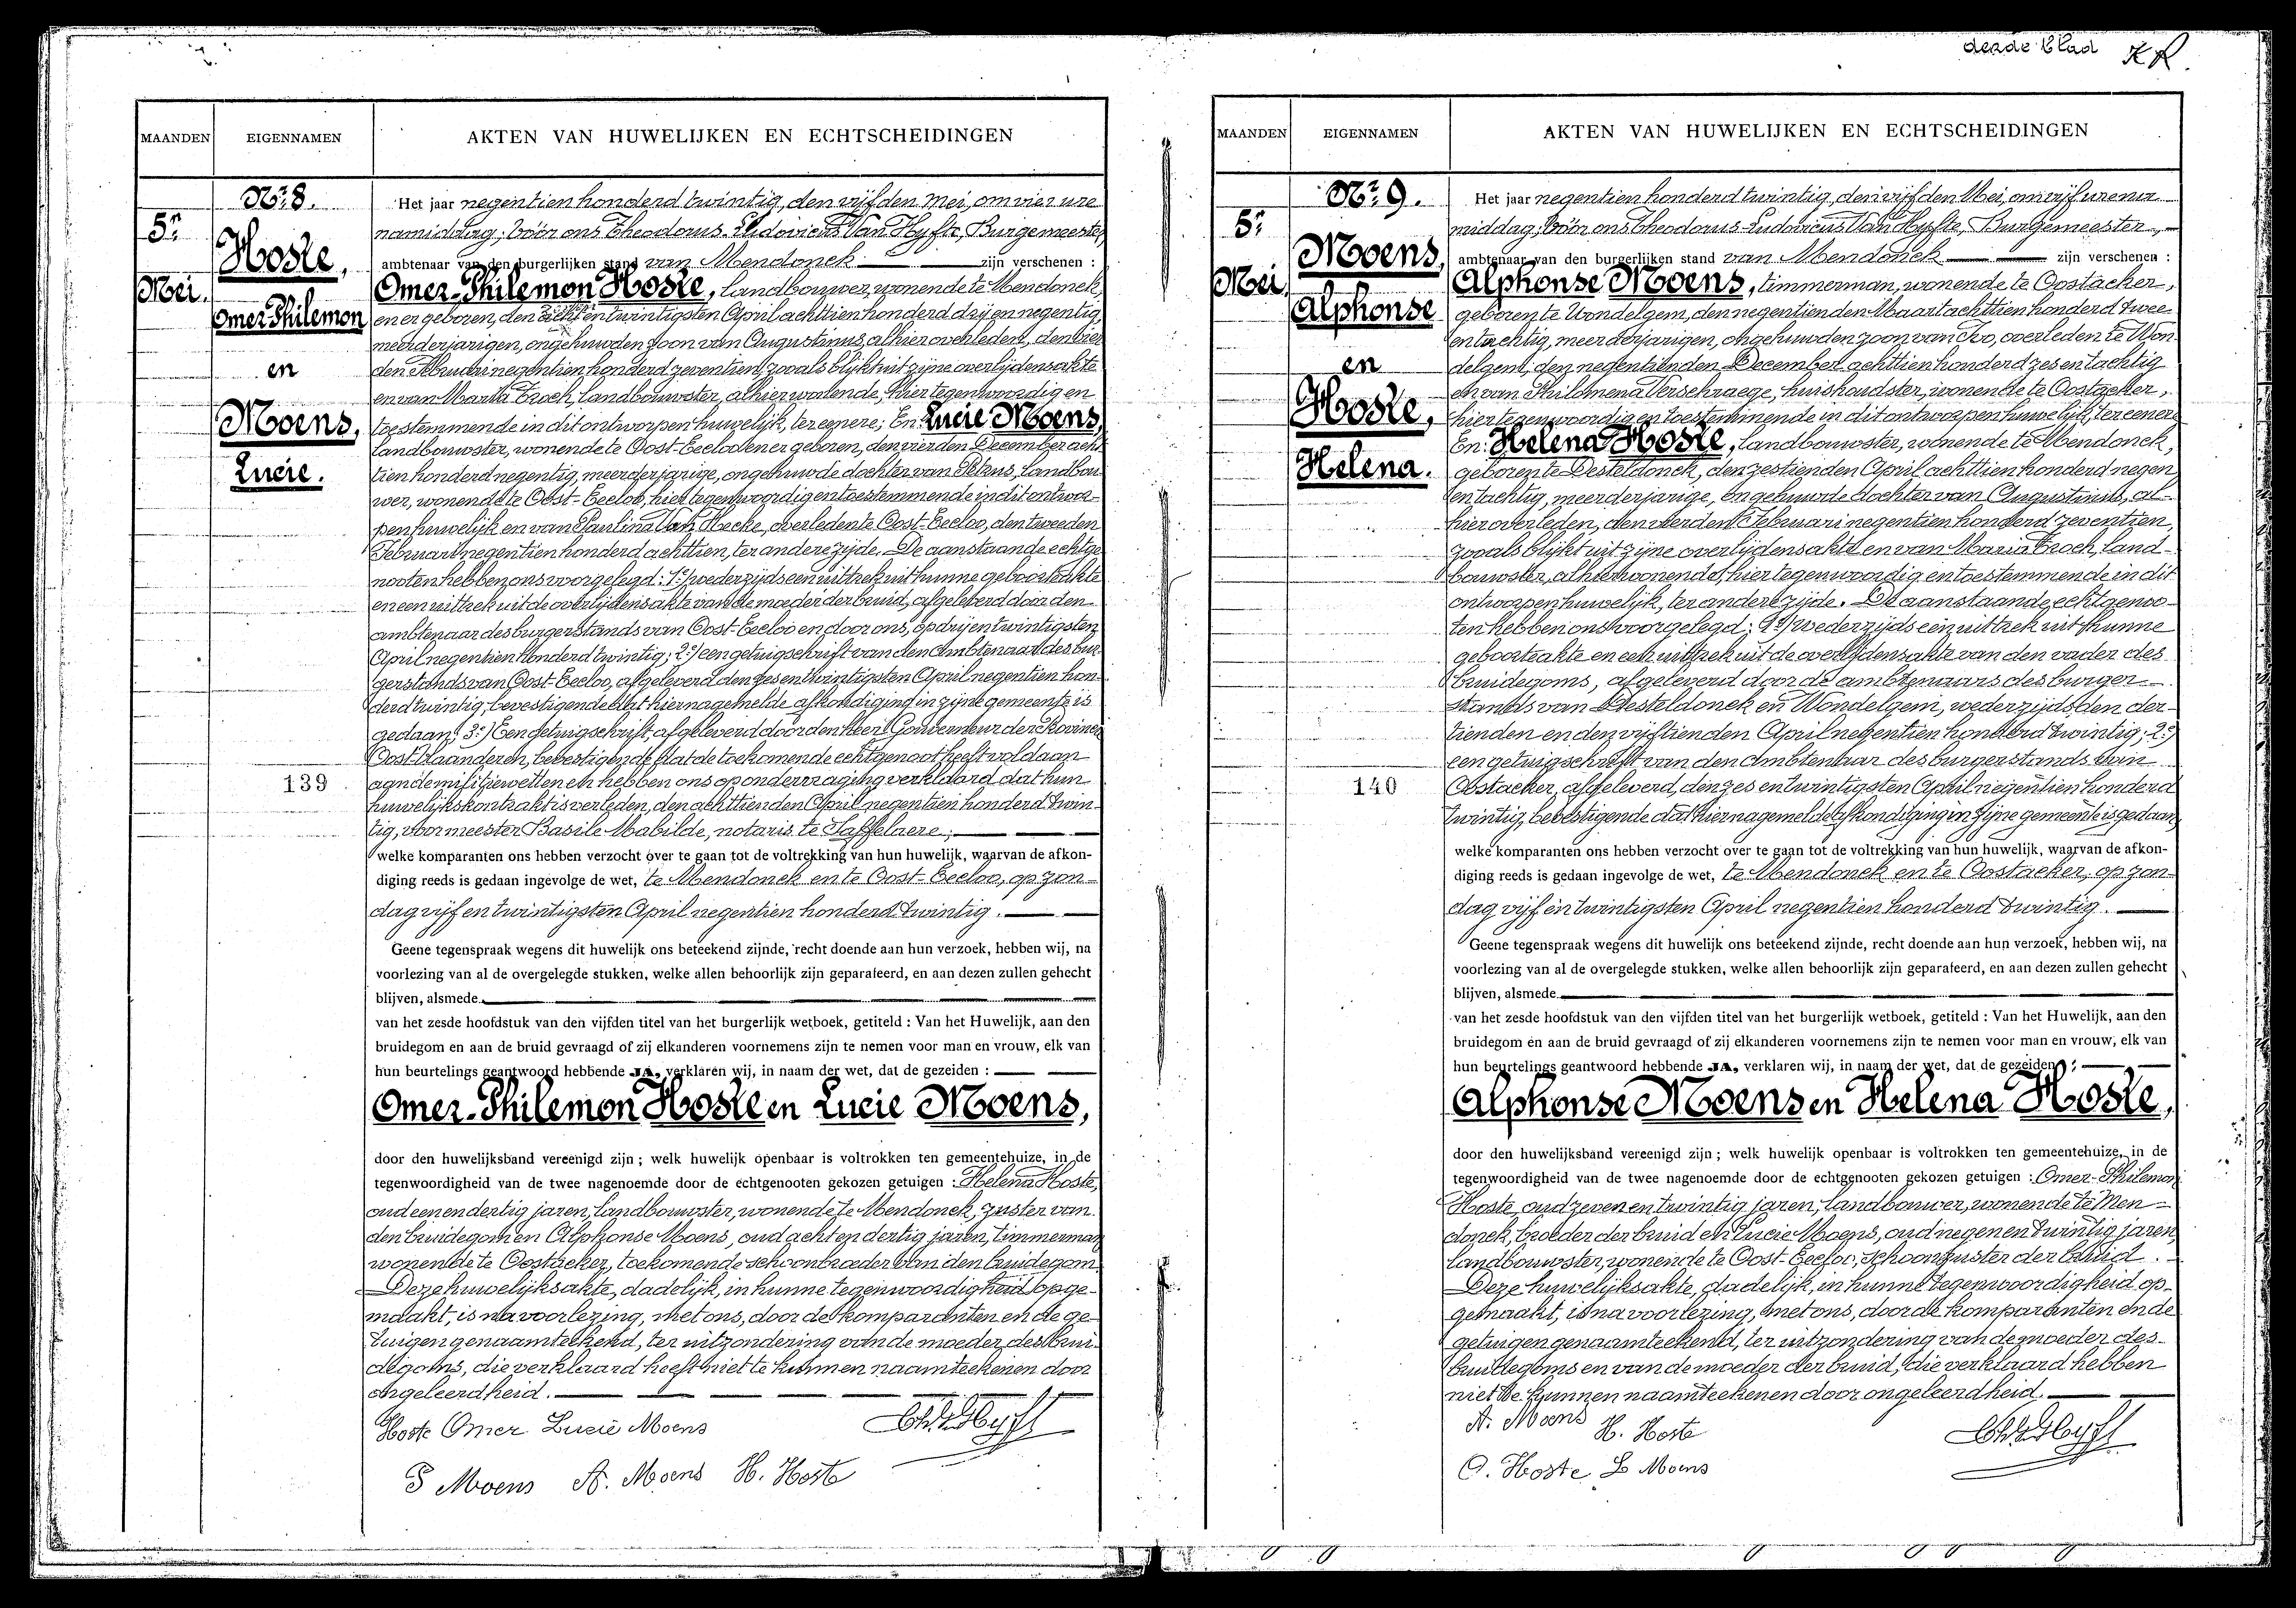 derde blad KR.
MAANDEN EIGENNAMEN AKTEN VAN HUWELIJKEN EN ECHTSCHEIDINGEN
Nr. 8.
5n
Mei.
Hoste,
Omer-Philemon
en
Moens,
Lucie.
139
Het jaar negentien honderd twintig, den vijfden Mei, om vier ure
namiddag; vóór ons Theodorus-Ludovicus Van Hyfte, Burgemeester,
ambtenaar van den burgerlijken stand van Mendonck zijn verschenen :
Omer-Philemon Hoste, landbouwer, wonende te Mendonck,
en er geboren, den en twintigsten April achttien honderd drij en negentig,
meerderjarigen, ongehuwden zoon van Augustinus, alhier overleden, den vier
den Februari negentien honderd zeventien, zooals blijkt uit zijne overlijdensakte
en van Maria Troch, landbouwster, alhier wonende, hier tegenwoordig en
toestemmende in dit ontworpen huwelijk, ter eenere; En: Lucie Moens,
landbouwster, wonende te Oost-Eecloo en er geboren, den vierden December acht
tien honderd negentig, meerderjarige, ongehuwde dochter van Petrus, landbou-
wer, wonende te Oost-Eecloo, hier tegenwoordig en toestemmende in dit ontwor-
pen huwelijk en van Paulina Van Hecke, overleden te Oost-Eecloo, den tweeden
Februari negentien honderd achttien, ter andere zijde. De aanstaande echtge-
nooten hebben ons voorgelegd: 1e) wederzijds een uittrek uit hunne geboorteakte
en een uittrek uit de overlijdensakte van de moeder der bruid, afgeleverd door den
ambtenaar des burgerstands van Oost-Eecloo en door ons, op drij en twintigsten
April negentien honderd twintig; 2e) een getuigschrift van den ambtenaar des bur
gerstands van Oost-Eecloo, afgeleverd den zes en twintigsten April negentien hon-
derd twintig, bevestigende dat hiernagemelde afkondiging in zijne gemeente is
gedaan; 3e) Een getuigschrift, afgeleverd door den heer Gouverneur der Provincie
Oost-Vlaanderen, bevestigende dat de toekomende echtgenoot heeft voldaan
aan de militiewetten en hebben ons op ondervraging verklaard dat hun
huwelijkskontrakt is verleden, den achttienden April negentien honderd twin-
tig, voor meester Basile Mabilde, notaris te Saffelaere;
welke komparanten ons hebben verzocht over te gaan tot de voltrekking van hun huwelijk, waarvan de afkon-
diging reeds is gedaan ingevolge de wet, te Mendonck en te Oost-Eecloo, op zon-
dag vijf en twintigsten April negentien honderd twintig.
Geene tegenspraak wegens dit huwelijk ons beteekend zijnde, recht doende aan hun verzoek, hebben wij, na
voorlezing van al de overgelegde stukken, welke allen behoorlijk zijn geparafeerd, en aan dezen zullen gehecht
blijven, alsmede
van het zesde hoofdstuk van den vijfden titel van het burgerlijk wetboek, getiteld : Van het Huwelijk, aan den
bruidegom en aan de bruid gevraagd of zij elkanderen voornemens zijn te nemen voor man en vrouw, elk van
hun beurtelings geantwoord hebbende JA, verklaren wij, in naam der wet, dat de gezeiden :
Omer-Philemon Hoste en Lucie Moens,
door den huwelijksband vereenigd zijn ; welk huwelijk openbaar is voltrokken ten gemeentehuize, in de
tegenwoordigheid van de twee nagenoemde door de echtgenooten gekozen getuigen : Helena Hoste,
oud een en dertig jaren, landbouwster, wonende te Mendonck, zuster van
den bruidegom en Alphonse Moens, oud acht en dertig jaren, timmerman
wonende te Oostacker, toekomende schoonbroeder van den bruidegom.
Deze huwelijksakte, dadelijk, in hunne tegenwoordigheid opge-
maakt, is na voorlezing, met ons, door de komparanten en de ge-
tuigen genaamteekend, ter uitzondering van de moeder des brui-
degoms, die verklaard heeft niet te kunnen naamteekenen door
ongeleerdheid.
Hoste Omer Lucie Moens
P Moens A. Moens H. Hoste
MAANDEN EIGENNAMEN AKTEN VAN HUWELIJKEN EN ECHTSCHEIDINGEN
Nr. 9.
5n
Mei.
Moens,
Alphonse
en
Hoste,
Helena.
140
Het jaar negentien honderd twintig, den vijfden Mei, om vijf ure na
middag; vóór ons Theodorus-Ludovicus Van Hyfte, Burgemeester,
ambtenaar van den burgerlijken stand van Mendonck zijn verschenen :
Alphonse Moens, timmerman, wonende te Oostacker,
geboren te Wondelgem, den negentienden Maart achttien honderd twee
en tachtig, meerderjarigen, ongehuwden zoon van Ivo, overleden te Won
delgem, den negentienden December achttien honderd zes en tachtig
en van Philomena Verschraege, huishoudster, wonende te Oostacker,
hier tegenwoordig en toestemmende in dit ontworpen huwelijk, ter eenere
En: Helena Hoste, landbouwster, wonende te Mendonck,
geboren te Desteldonck, den zestienden April achttien honderd negen
en tachtig, meerderjarige, ongehuwde dochter van Augustinus, al-
hier overleden, den vierden Februari negentien honderd zeventien,
zooals blijkt uit zijne overlijdensakte en van Maria Troch, land-
bouwster, alhier wonende, hier tegenwoordig en toestemmende in dit
ontworpen huwelijk, ter andere zijde. De aanstaande echtgenoo-
ten hebben ons voorgelegd; 1e) wederzijds een uittrek uit hunne
geboorteakte en een uittrek uit de overlijdensakte van den vader des
bruidegoms, afgeleverd door de ambtenaars des burger-
stands van Desteldonck en Wondelgem, wederzijds den der-
tienden en den vijftienden April negentien honderd twintig; 2e)
een getuigschrift van den ambtenaar des burgerstands van
Oostacker, afgeleverd, den zes en twintigsten April negentien honderd
twintig, bevestigende dat hiernagemelde afkondiging in zijne gemeente is gedaan,
welke komparanten ons hebben verzocht over te gaan tot de voltrekking van hun huwelijk, waarvan de afkon-
diging reeds is gedaan ingevolge de wet, te Mendonck en te Oostacker, op zon-
dag vijf en twintigsten April negentien honderd twintig.
Geene tegenspraak wegens dit huwelijk ons beteekend zijnde, recht doende aan hun verzoek, hebben wij, na
voorlezing van al de overgelegde stukken, welke allen behoorlijk zijn geparafeerd, en aan dezen zullen gehecht
blijven, alsmede
van het zesde hoofdstuk van den vijfden titel van het burgerlijk wetboek, getiteld : Van het Huwelijk, aan den
bruidegom en aan de bruid gevraagd of zij elkanderen voornemens zijn te nemen voor man en vrouw, elk van
hun beurtelings geantwoord hebbende JA, verklaren wij, in naam der wet, dat de gezeiden :
Alphonse Moens en Helena Hoste,
door den huwelijksband vereenigd zijn ; welk huwelijk openbaar is voltrokken ten gemeentehuize, in de
tegenwoordigheid van de twee nagenoemde door de echtgenooten gekozen getuigen : Omer-Philemon
Hoste, oud zeven en twintig jaren, landbouwer, wonende te Men-
donck, broeder der bruid en Lucie Moens, oud negen en twintig jaren,
landbouwster, wonende te Oost-Eecloo, schoonzuster der bruid.
Deze huwelijksakte, dadelijk, in hunne tegenwoordigheid op-
gemaakt, is na voorlezing, met ons, door de komparanten en de
getuigen genaamteekend, ter uitzondering van de moeder des
bruidegoms en van de moeder der bruid, die verklaard hebben
niet te kunnen naamteekenen door ongeleerdheid.
A. Moens H. Hoste
O. Hoste L Moens